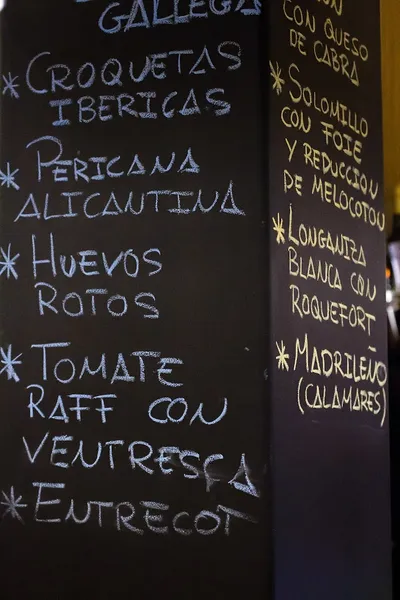 GALLEGAS
* CROQUETAS
IBERICAS
* PERICANA
ALICANTINA
* HUEVOS
ROTOS
* TOMATE
RAFF CON
VENTRESCA
* ENTRECOT
CON QUESO
DE CABRA
* SOLOMILLO
CON FOIE
Y REDUCCION
DE MELOCOTON
* LONGANIZA
BLANCA CON
ROQUEFORT
* MADRILEÑO
(CALAMARES)